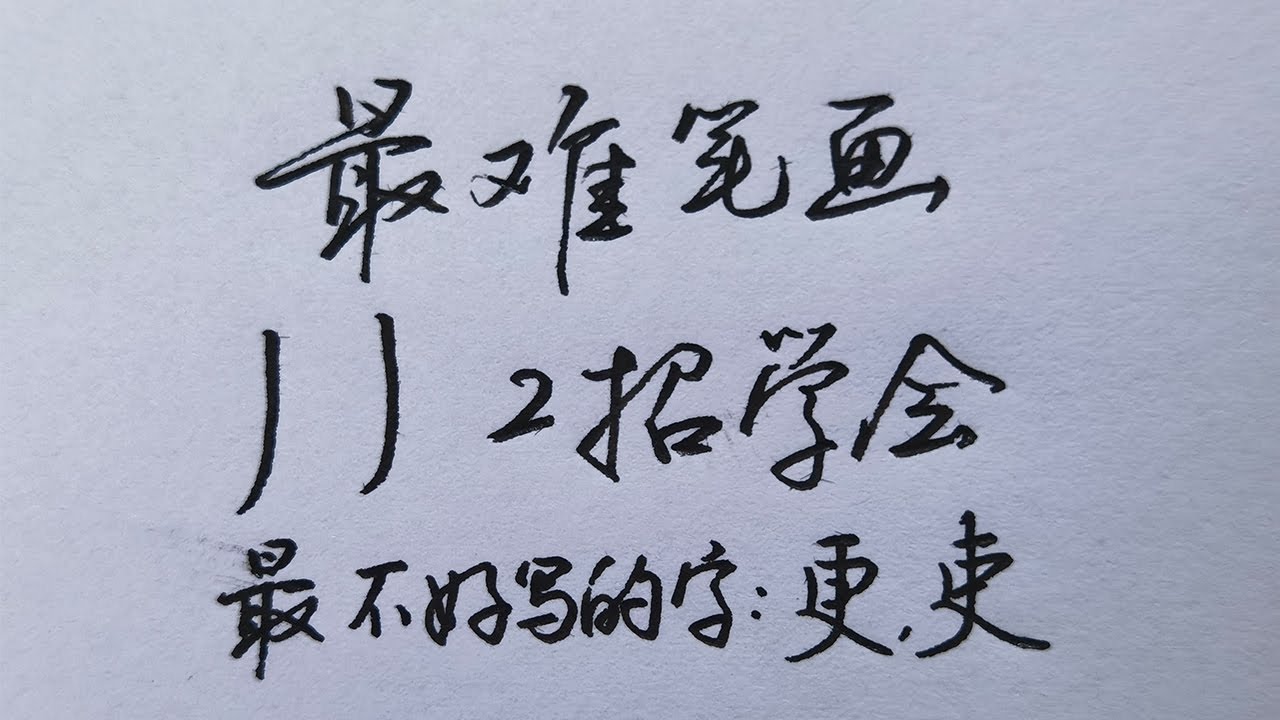 最难笔画
丿丿 2招学会
最不好写的字:更,吏